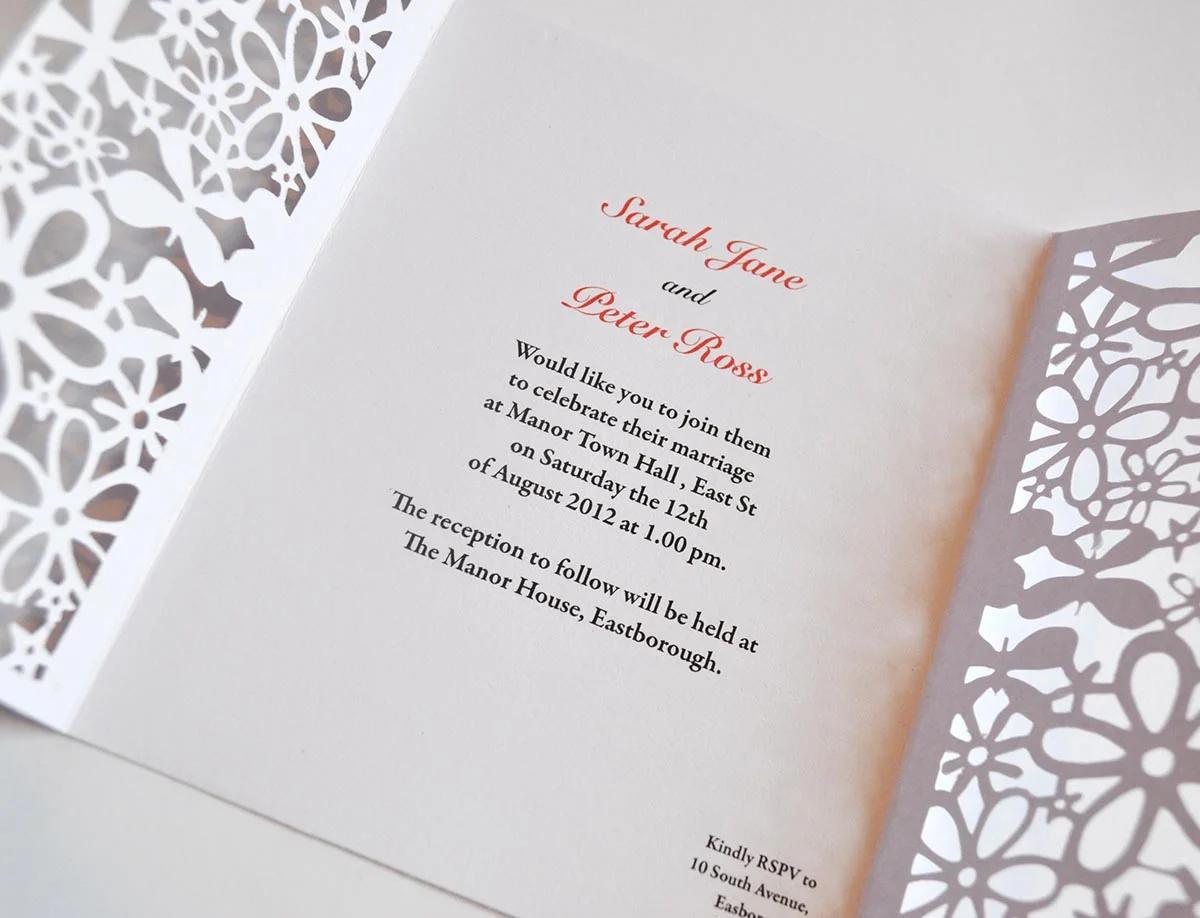 Sarah Jane
and
Peter Ross
Would like you to join them
to celebrate their marriage
at Manor Town Hall , East St
on Saturday the 12th
of August 2012 at 1.00 pm.
The reception to follow will be held at
The Manor House, Eastborough.
Kindly RSPV to
10 South Avenue,